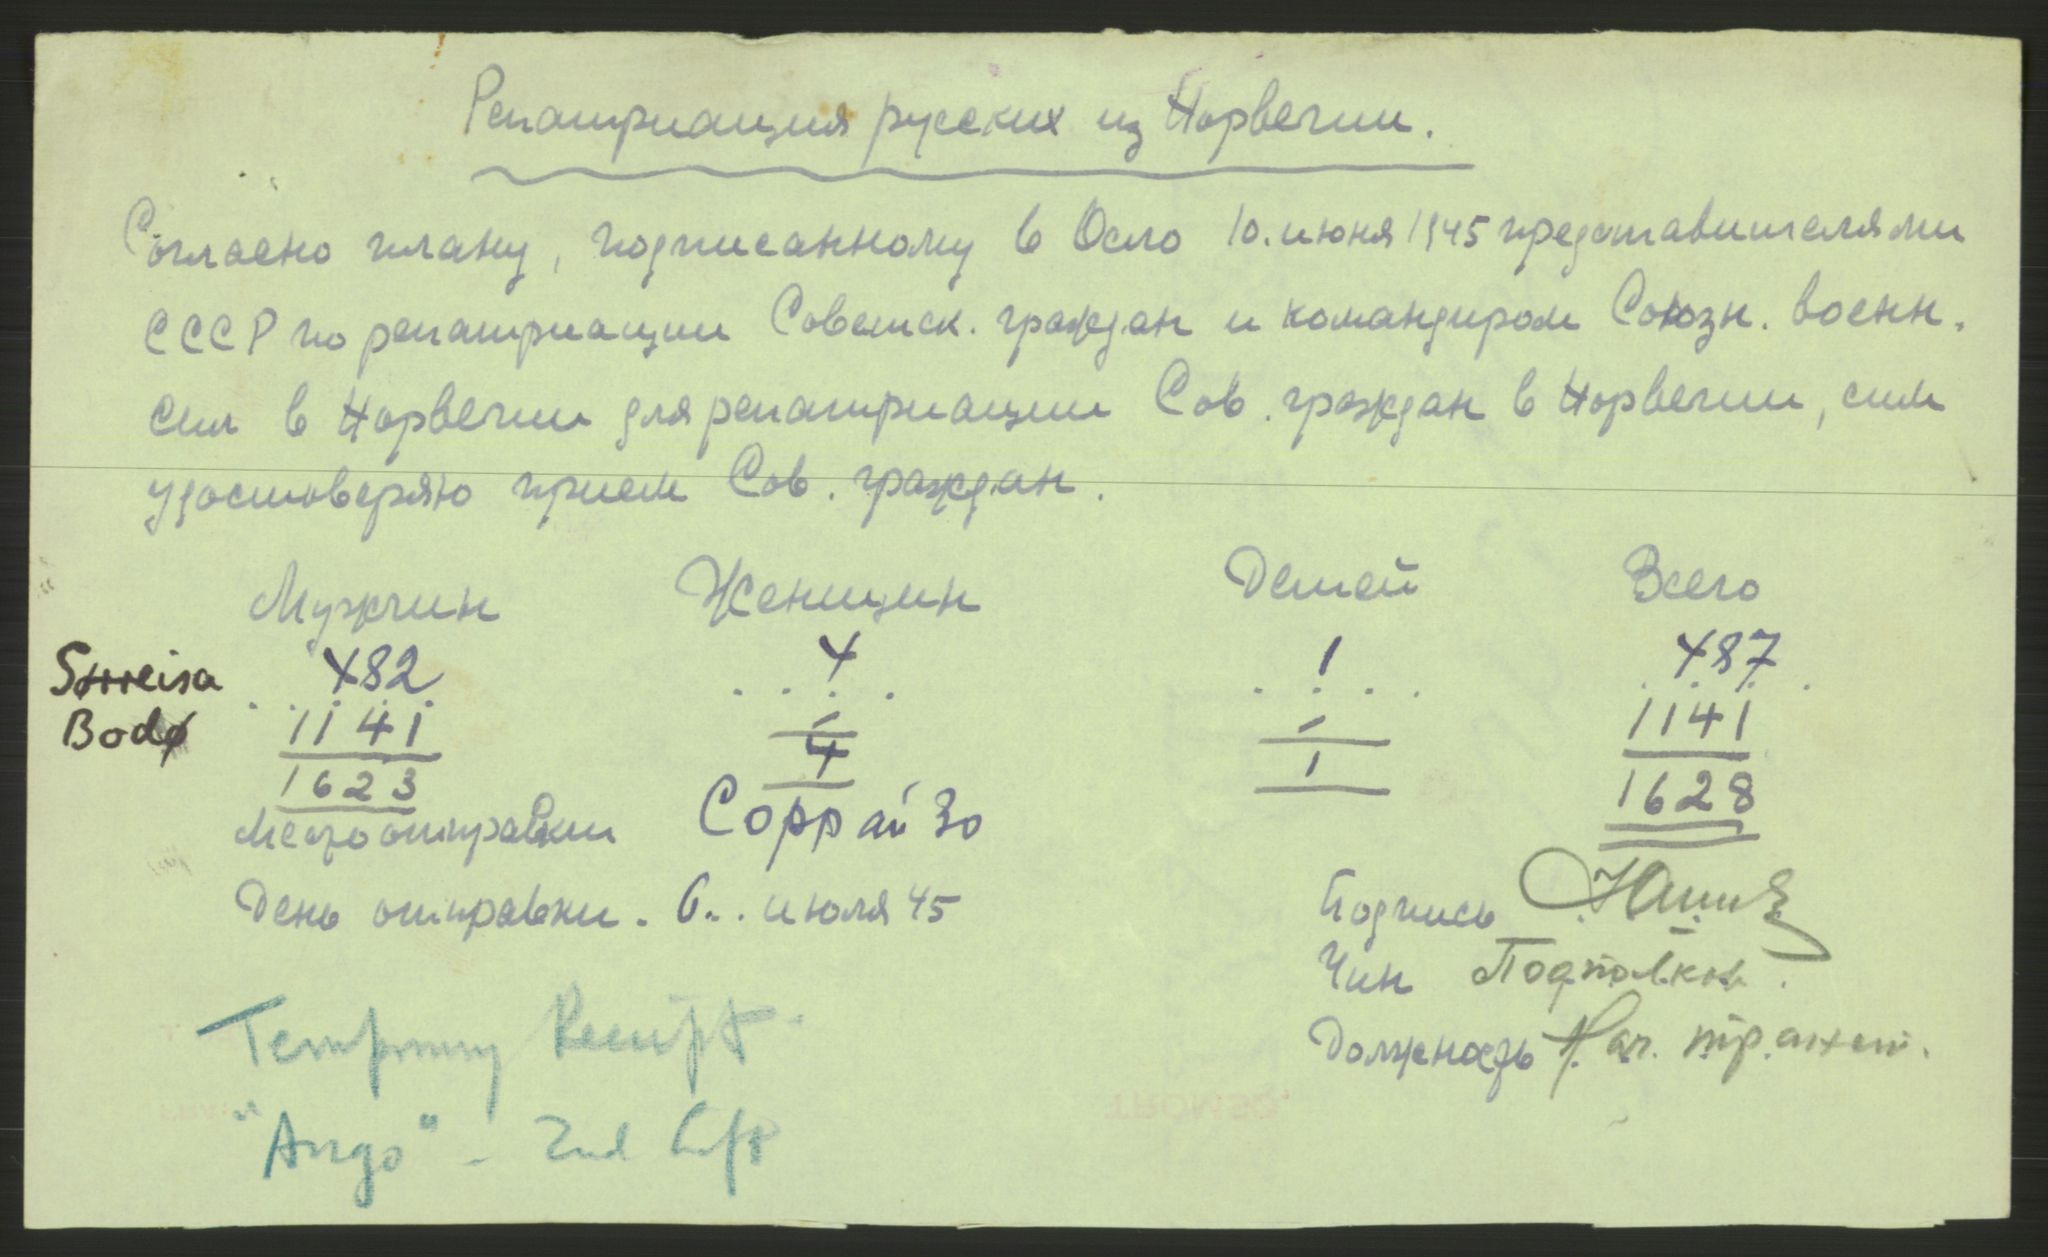 Репатриация русских из Норвегии.
Согласно плану, подписанному в Осло 10. июня 1945 представителями
СССР по репатриации Советск. граждан и командиром Союзн. военн.
сил в Норвегии для репатриации Сов. граждан в Норвегии, сим
удостоверяю прием Сов. граждан.
Мужчин Женщин Детей Всего
482 4 1 487
Bodø 1141 - - 1141
1623 4 1 1628
Место отправки Соррайзо
День отправки. 6... июля 45
Подпись
Чин Подполков.
Должность Нач.
Temporary Receipt
"Argo" - 2nd Lift
TROMSØ.